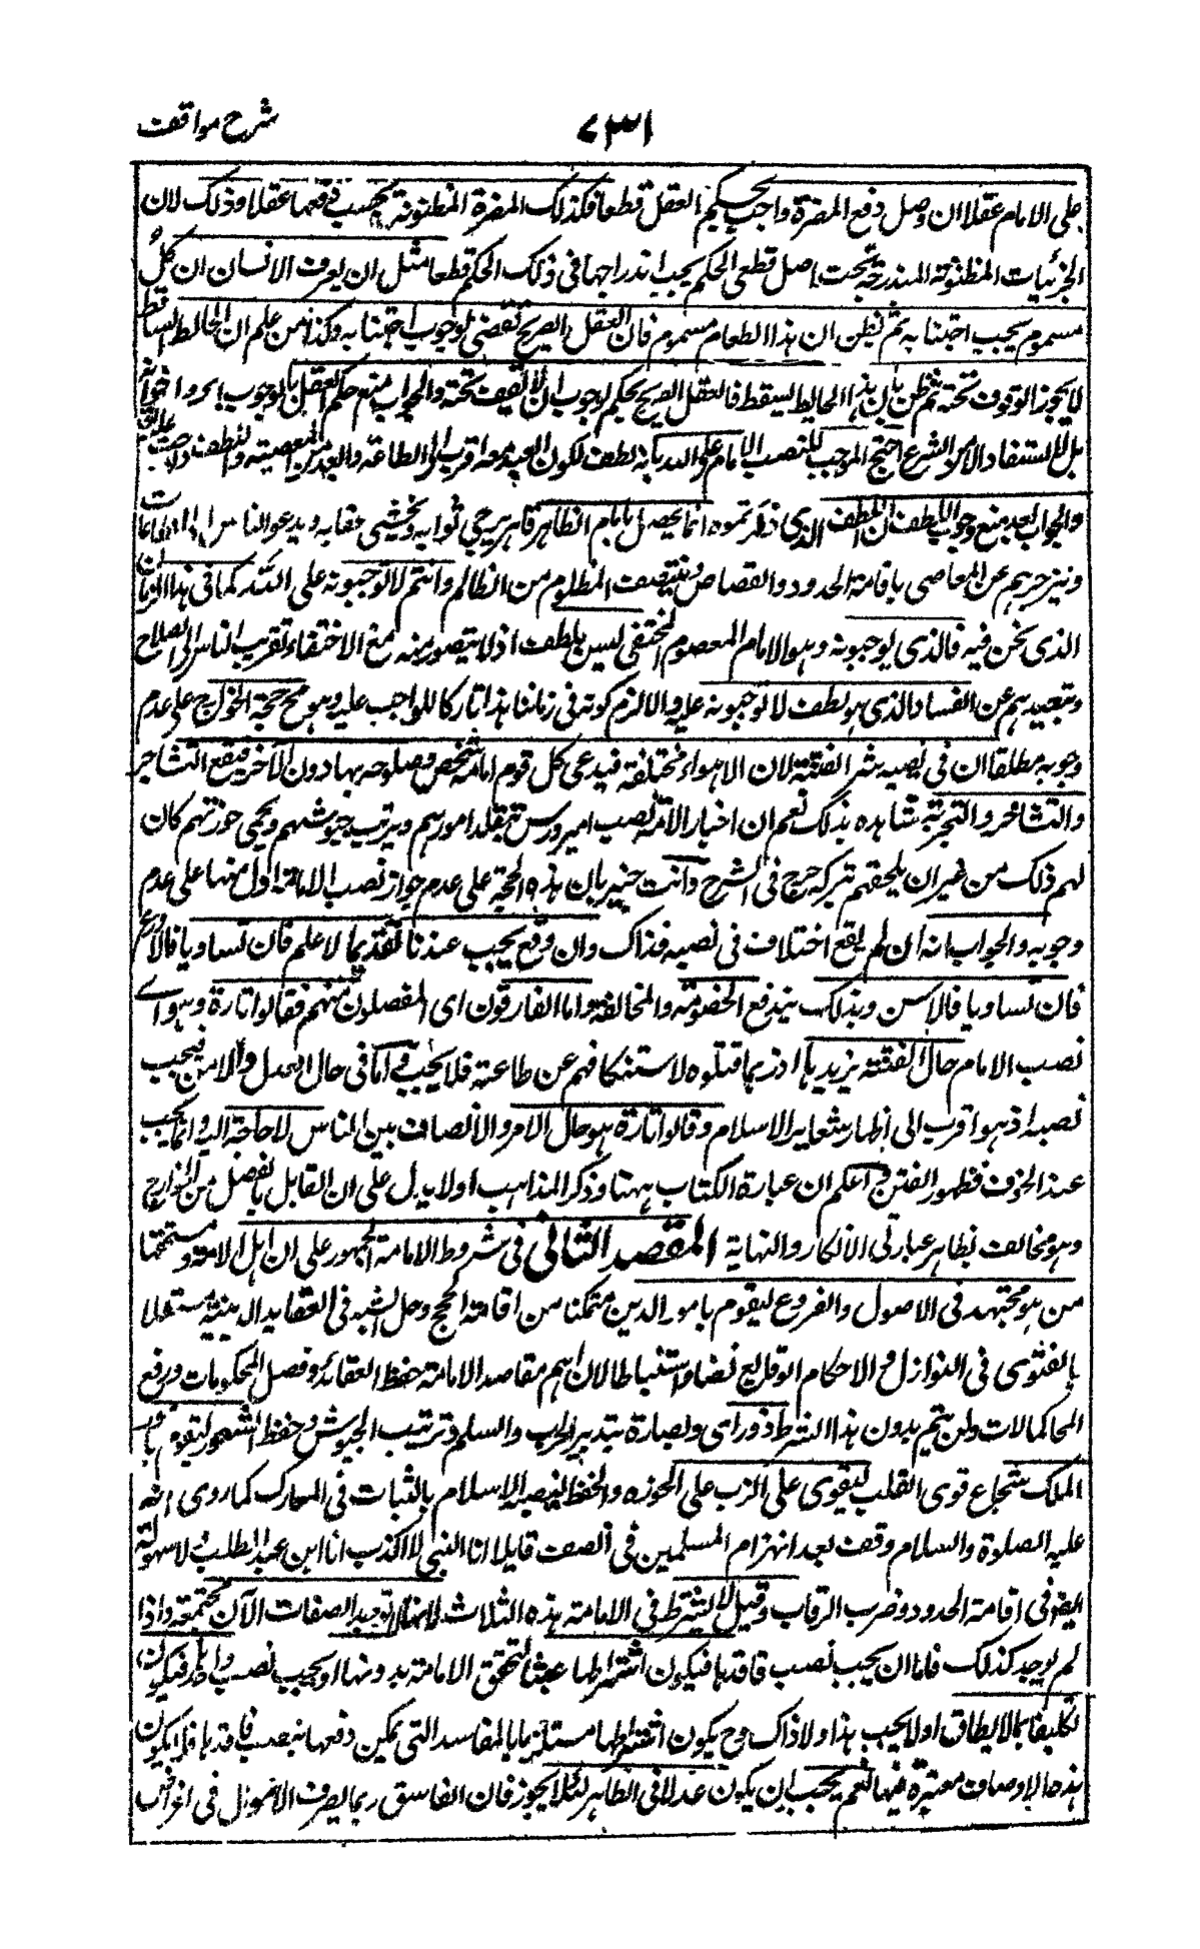 شرح مواقف
٧٣١
على الامام عقلا ان وصل دفع المضرة واجب بحكم العقل قطعا فكذلك المضرة المظنونة يجب دفعها عقلا وذلك لان
الجزئيات المظنونة المندرجة تحت اصل قطعى الحكم يجب اندراجها فى ذلك الحكم قطعا مثل ان يعرف الانسان ان كل
مسموم يجب اجتنابه ثم يظن ان هذا الطعام مسموم فان العقل الصريح يقضى بوجوب اجتنابه وكذا من علم ان الحائط الساقط
لا يجوز الوقوف تحته ثم ظن بان هذا الحائط يسقط فالعقل الصريح يحكم بوجوب ان لا يقف تحته والجواب منع حكم العقل بالوجوب
بل المستفاد الامر الشرع احتج الموجب للنصب الامام على الله بانه لطف لكون العبد معه اقرب الى الطاعة وابعد من المعصية واللطف واجب
والجواب بعد منع وجوب اللطف ان اللطف الذى ذكرتموه انما يحصل بامام الظاهر قاهر يرجى ثوابه ويخشى عقابه ويدعو الناس الى الطاعات
ويزجرهم عن المعاصى باقامة الحدود والقصاص وينتصف المظلوم من الظالم وانتم لا توجبونه على الله كما فى هذا الزمان
الذى نحن فيه فالذى يوجبونه وهو الامام المعصوم المختفى ليس بلطف اذ لا يتصور منه مع الاختفاء تقريب الناس الى الصلاح
وتبعيدهم عن الفساد الذى هو لطف لا توجبونه عليه والا لزم كونه فى زماننا هذا تاركا للواجب عليه وهو مح حجة الخوارج على عدم
وجوبه مطلقا ان فى نصبه شر الفتنة لان الاهواء مختلفة فيدعى كل قوم امامة شخص وصلوحه بها دون الآخر فيقع التشاجر
والتشاخر والتجربة شاهده بذلك نعم ان اختار الامة نصب امير ورس يتقلد امورهم ويرتب جيوشهم ويحمى حوزتهم كان
لهم ذلك من غير ان يلحقهم بتركه حرج فى الشرح وانت خبير بان هذه الحجة على عدم جواز نصب الامامة اول منها على عدم
وجوبه والجواب انه ان لم يقع اختلاف فى نصبه فذاك وان وقع يجب عندنا تقديم الاعلم فان تساويا فالاورع
فان تساويا فالاسن وبذلك يندفع الخصومة والمخالفة واما الفارقون اى المفصلون منهم فقالوا تارة وهو اے
نصب الامام حال الفتنة يزيدها اذ ربما قتلوه لاستنكافهم عن طاعته فلا يجب فى اما فى حال العدل والامن فيجب
نصبه اذ هو اقرب الى اظهار شعاير الاسلام وقالوا تارة هو حال الامر والانصاف بين الناس لا حاجة اليه وانما يجب
عند الخوف فظهور الفتن واعلم ان عبارة الكتاب ههنا وذكر المذاهب اولا يدل على ان القايل بالفصل من الخوارج
وهو مخالف لظاهر عبارتى الابكار والنهاية المقصد الثانى فى شروط الامامة الجمهور على ان اهل الامامة ومستحقها
من هو مجتهد فى الاصول والفروع ليقوم بامور الدين متمكنا من اقامة الحجج وحل الشبه فى العقايد الدينية مستقلا
بالفتوى فى النوازل والاحكام الوقايع نصا واستنباطا لان اهم مقاصد الامامة حفظ العقائد وفصل المحكومات ورفع
المحاكمات ولن يتم بدون هذا الشرط ذو راى وبصارة بتدبير الحرب والسلم وترتيب الجيوش وحفظ الثغور ليقوم بامور
الملك شجاع قوى القلب ليقوى على الذب على الحوزه والحفظ لبيضة الاسلام بالثبات فى المعارك كما روى انه
عليه الصلوة والسلام وقف بعد انهزام المسلمين فى الصف قايلا انا النبى لا كذب انا ابن عبد المطلب ولاسهولة
ايضا فى اقامة الحدود وضرب الرقاب وقيل لا يشترط فى الامامة هذه الثلاث لانها لا توجد الصفات الآن مجتمعة واذا
لم يوجد كذلك فاما ان يجب نصب فاقدها فيكون اشتراطها عبثا لتحقق الامامة بدونها او يجب نصب واجدها فيكون
تكليفا بما لا يطاق او لا يجب هذا ولا ذاك وح يكون اشتراطها مستلزما بالمفاسد التى يمكن دفعها بنصب فاقدها فلا يكون
هذه الاوصاف معتبرة فيها نعم يجب ان يكون عدلا فى الظاهر لئلا يجوز فان الفاسق ربما يصرف الاموال فى اغراض